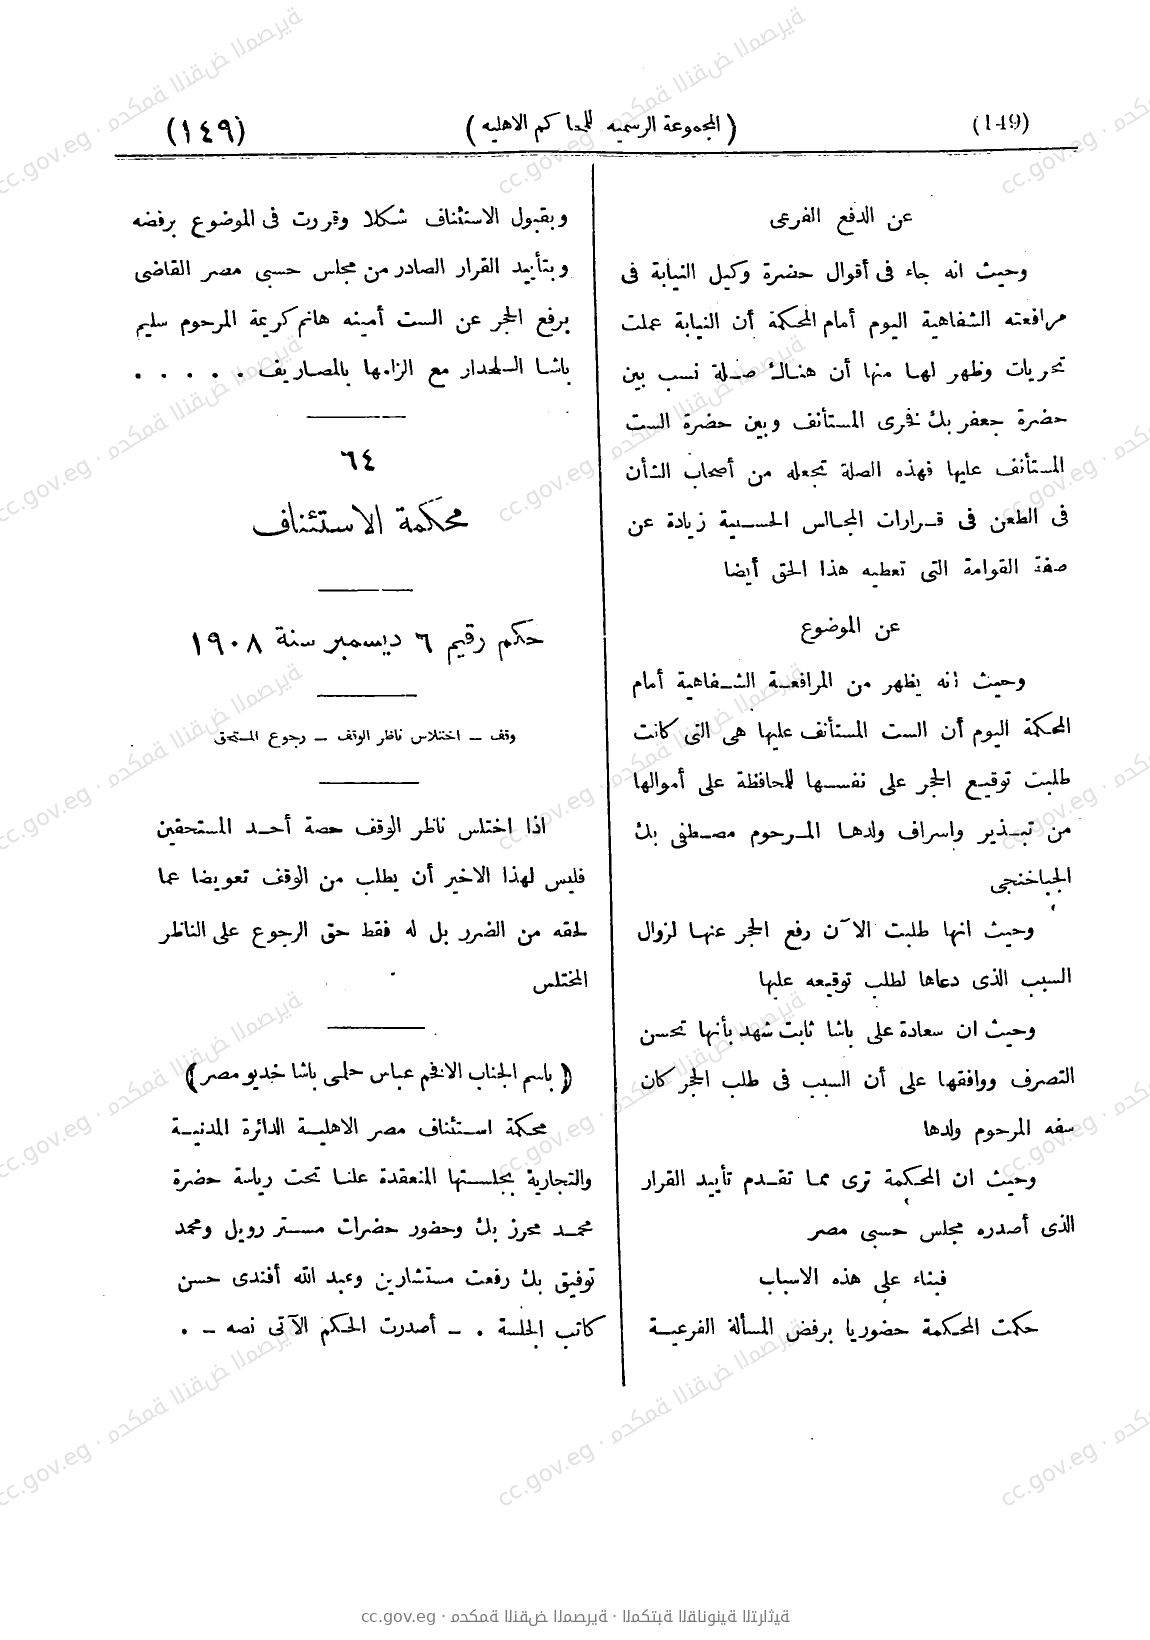 (149)
(المجموعة الرسميه للمحاكم الاهليه)
(١٤٩)
عن الدفع الفرعى
وحيث انه جاء فى أقوال حضرة وكيل النيابة فى
مرافعته الشفاهية اليوم أمام المحكمة أن النيابة عملت
تحريات وظهر لهـا منها أن هنـاك صـلة نسب بين
حضرة جعفر بك فخرى المستأنف وبين حضرة الست
المستأنف عليها فهذه الصلة تجعله من أصحاب الشأن
فى الطعن فى قـرارات المجـالس الحسـبية زيادة عن
صفة القوامة التى تعطيه هذا الحق أيضا
عن الموضوع
وحيث انه يظهر من المرافعـة الشـفاهية أمام
المحكمة اليوم أن الست المستأنف عليها هى التى كانت
طلبت توقيـع الحجر على نفسـها للمحافظة على أموالها
من تبـذير واسراف ولدهـا المـرحوم مصـطفى بك
الجباخنجى
وحيث انها طلبت الآن رفع الحجر عنهـا لزوال
السبب الذى دعاها لطلب توقيعه عليها
وحيث ان سعادة على باشا ثابت شهد بأنها تحسن
التصرف ووافقها على أن السبب فى طلب الحجر كان
سفه المرحوم ولدها
وحيث ان المحكمة ترى ممـا تقـدم تأييد القرار
الذى أصدره مجلس حسبى مصر
فبناء على هذه الاسباب
حكمت المحكمة حضوريا برفض المسألة الفرعيـة
وبقبول الاستئناف شكلا وقررت فى الموضوع برفضه
وبتأييد القرار الصادر من مجلس حسبى مصر القاضى
برفع الحجر عن الست أمينه هانم كريمة المرحوم سليم
باشـا السلحدار مع الزامها بالمصاريف . . . . .
٦٤
محكمة الاستئناف
حكم رقيم ٦ ديسمبر سنة ١٩٠٨
وقف ـ اختلاس ناظر الوقف ـ رجوع المستحق
اذا اختلس ناظر الوقف حصة أحـد المستحقين
فليس لهذا الاخير أن يطلب من الوقف تعويضا عما
لحقه من الضرر بل له فقط حق الرجوع على الناظر
المختلس
(باسم الجناب الافخم عباس حلمى باشا خديو مصر)
محكمة اسـتئناف مصر الاهليـة الدائرة المدنيـة
والتجارية بجلسـتها المنعقدة علنـا تحت رياسة حضرة
محمـد محرز بك وحضور حضرات مسـتر رويل ومحمد
توفيق بك رفعت مستشارين وعبد الله أفندى حسن
كاتب الجلسة . ـ أصدرت الحكم الآتى نصه ـ .
cc.gov.eg · محكمة النقض المصرية · المكتبة القانونية التراثية